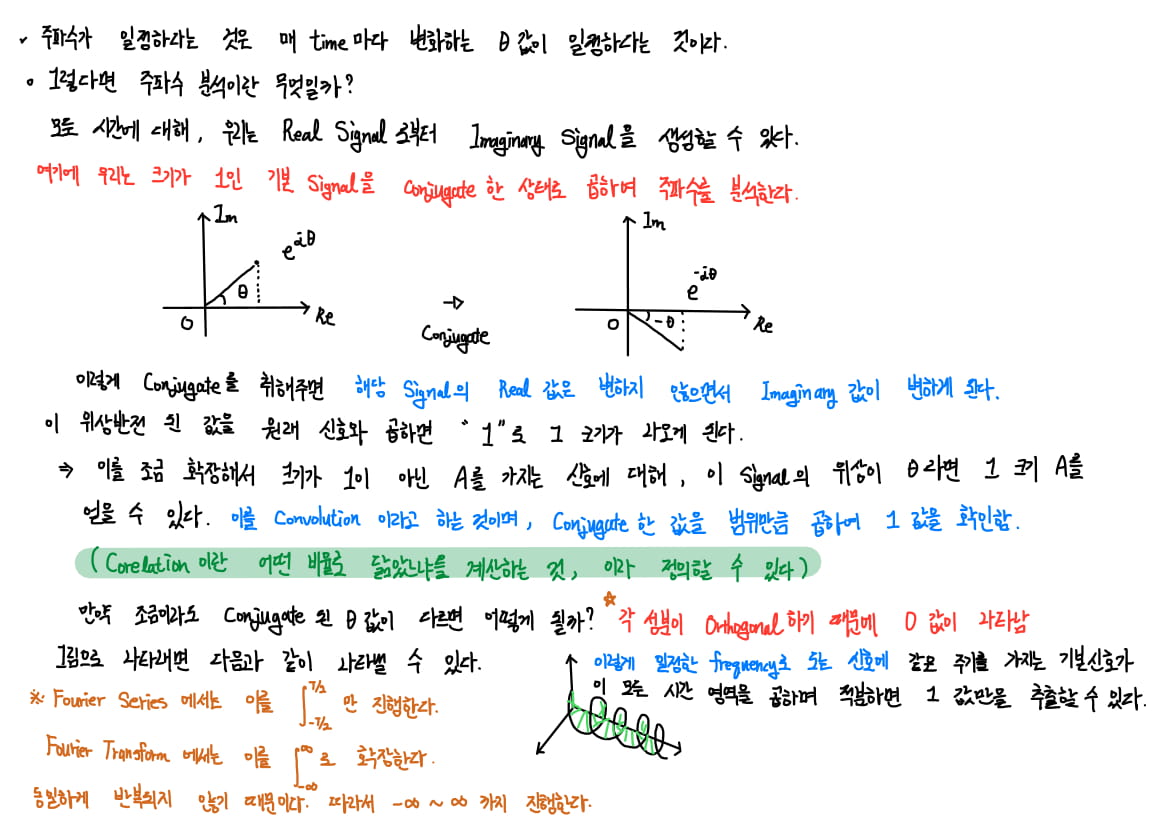 ✓ 주파수가 일정하다는 것은 매 time마다 변화하는 θ 값이 일정하다는 것이다.
○ 그렇다면 주파수 분석이란 무엇일까?
모든 시간에 대해, 우리는 Real Signal 로부터 Imaginary Signal을 생성할 수 있다.
여기에 우리는 크기가 1인 기본 Signal을 Conjugate 한 상태로 곱하며 주파수를 분석한다.
Im
e^{iθ}
θ
O
Re
⇒
Conjugate
Im
e^{-iθ}
O
-θ
Re
이렇게 Conjugate를 취해주면 해당 Signal의 Real 값은 변하지 않으면서 Imaginary 값이 변하게 된다.
이 위상반전 된 값을 원래 신호와 곱하면 "1"로 그 크기가 나오게 된다.
⇒ 이를 조금 확장해서 크기가 1이 아닌 A를 가지는 신호에 대해, 이 Signal의 위상이 θ라면 그 크기 A를
얻을 수 있다. 이를 Convolution 이라고 하는 것이며, Conjugate 한 값을 범위만큼 곱하여 그 값을 확인함.
(Corelation 이란 어떤 비율로 닮았느냐를 계산하는 것, 이라 정의할 수 있다)
만약 조금이라도 Conjugate 된 θ 값이 다르면 어떻게 될까? ☆ 각 성분이 Orthogonal 하기 때문에 0 값이 나타남
그림으로 나타내면 다음과 같이 나타낼 수 있다.
이렇게 일정한 frequency로 도는 신호에 같은 주기를 가지는 기본신호가
이 모든 시간 영역을 곱하며 적분하면 그 값만을 추출할 수 있다.
※ Fourier Series 에서는 이를 ∫_{-T/2}^{T/2} 만 진행한다.
Fourier Transform 에서는 이를 ∫_{-∞}^{∞} 로 확장한다.
동일하게 반복되지 않기 때문이다. 따라서 -∞ ~ ∞ 까지 진행한다.